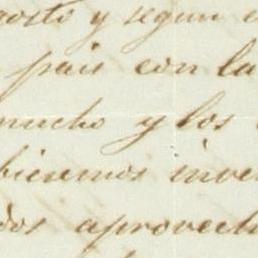 gosto y segun e
pais con la
mucho y los
bieremos inve
dos aprovech